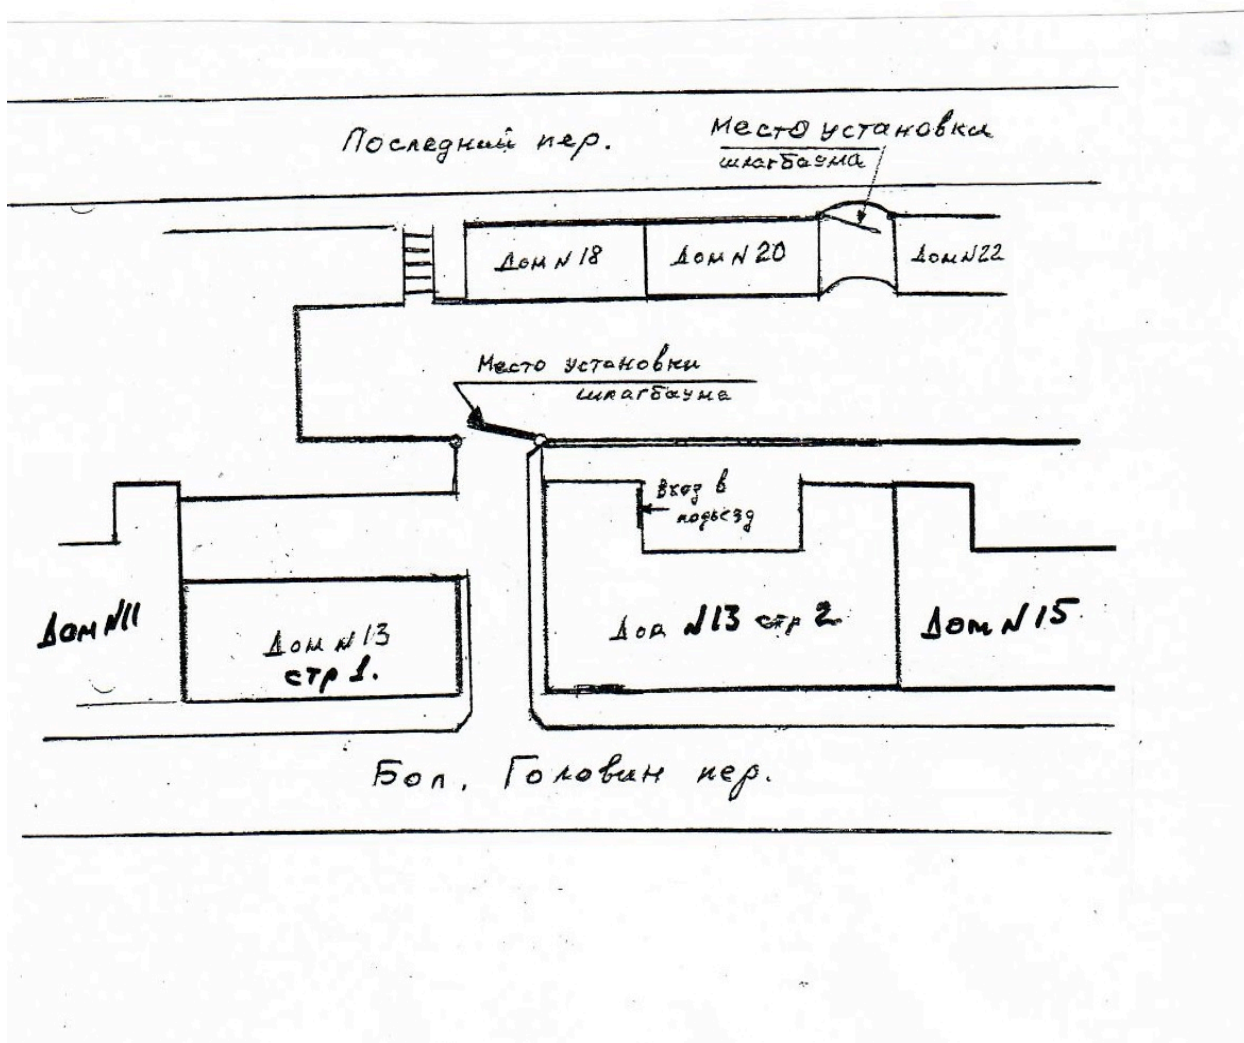 Последний пер.
Место установки
шлагбаума
Дом N 18
Дом N 20
Дом N 22
Место установки
шлагбаума
Вход в
подъезд
Дом N 11
Дом N 13
стр 1.
Дом N 13 стр 2
Дом N 15
Бол. Головин пер.